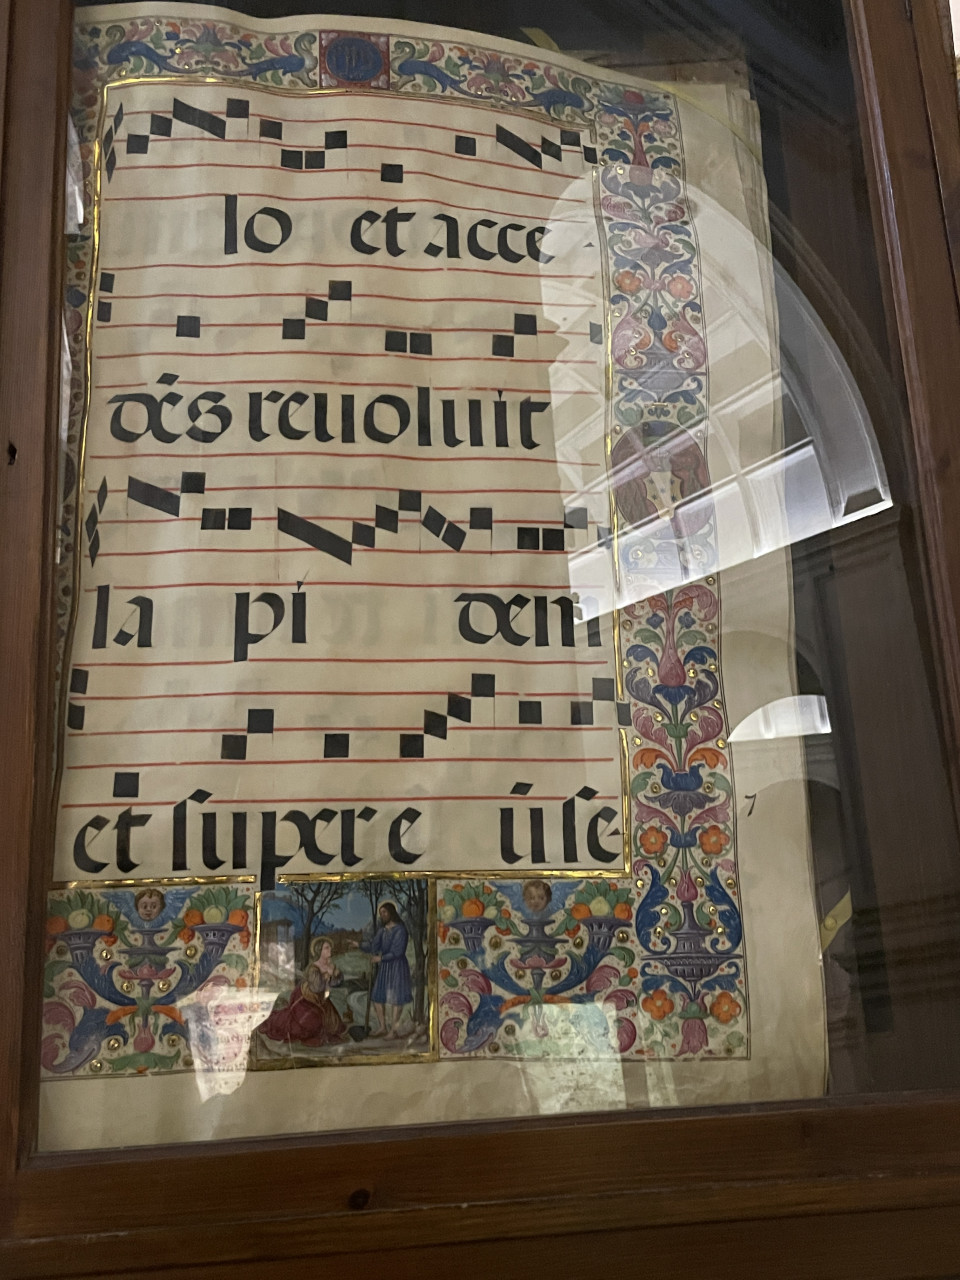 lo et acce
dés reuoluit
la pí dem
et super e ú se